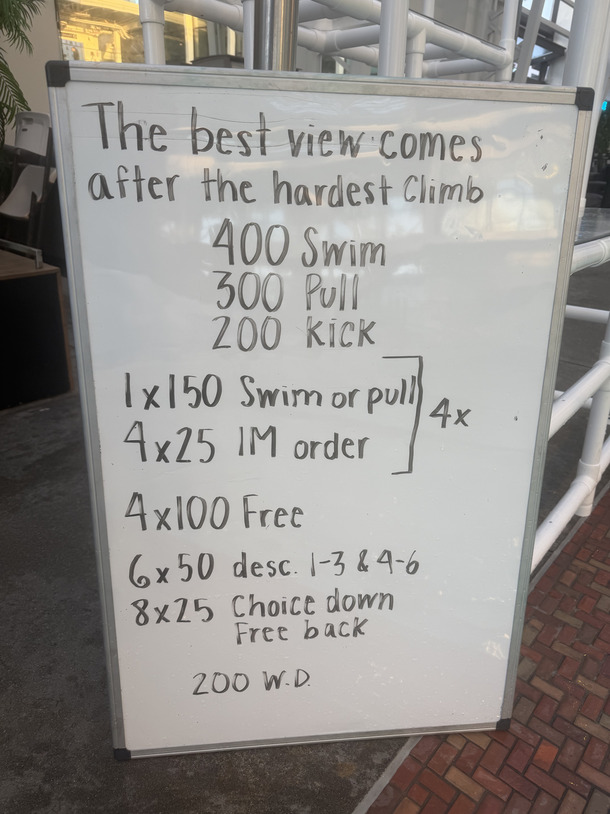 The best view comes
after the hardest Climb
400 Swim
300 Pull
200 Kick
1x150 Swim or pull
4x25 IM order
4x
4x100 Free
6x50 desc. 1-3 & 4-6
8x25 Choice down
Free back
200 W.D.